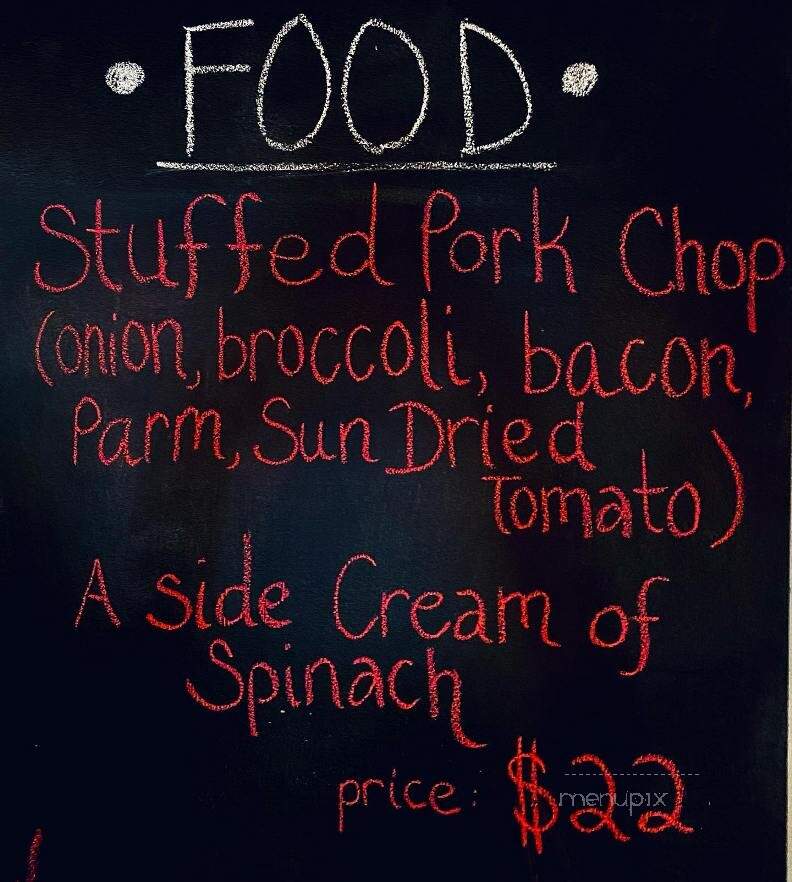 • FOOD •
Stuffed Pork Chop
(onion, broccoli, bacon,
Parm, Sun Dried
Tomato)
A side Cream of
Spinach
price: $22
menupix